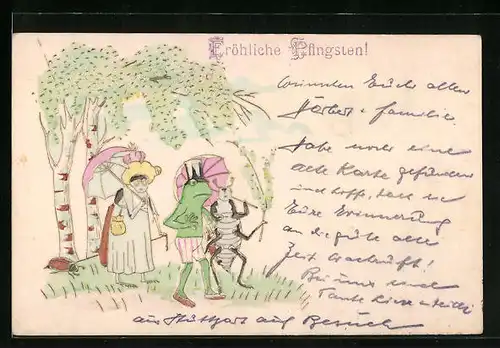 Fröhliche Pfingsten!
wünschen Euch allen
Herbert + Familie.
Habe noch eine
alte Karte gefunden
und hoffe, dass sie
Eure Erinnerung
an die gute alte
Zeit
Bei uns
Tante
aus Stuttgart auf Besuch